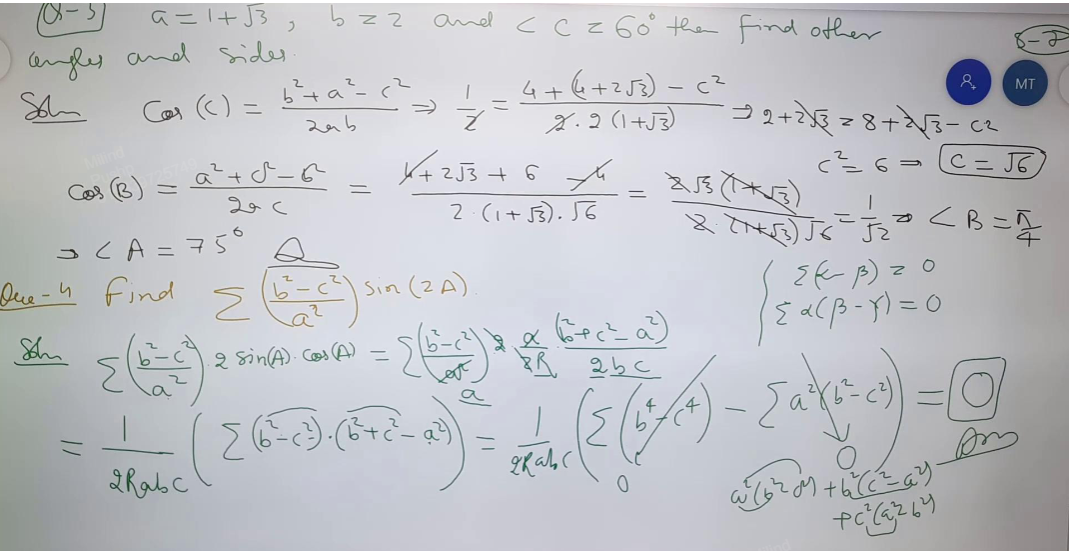 Q-3 a = 1 + √3 , b = 2 and < C = 60° then find other
angles and sides.
Soln Cos (C) = (b² + a² - c²)/(2ab) ⇒ 1/2 = (4 + (4 + 2√3) - c²)/(2 · 2 (1 + √3)) ⇒ 2 + 2√3 = 8 + 2√3 - c²
c² = 6 ⇒ C = √6
Cos (B) = (a² + c² - b²)/(2ac) = (4 + 2√3 + 6 - 4)/(2 · (1 + √3) · √6) = (2√3 (1 + √3))/(2 · (1 + √3) √6) = 1/√2 ⇒ < B = π/4
⇒ < A = 75°
Que-4 Find Σ ((b² - c²)/a²) sin (2A).
Σ(α - β) = 0
Σ α(β - γ) = 0
Soln Σ ((b² - c²)/a²) · 2 sin(A) · cos(A) = Σ ((b² - c²)/a²) 2 · a/2R · (b² + c² - a²)/(2bc)
a
= 1/(2Rabc) ( Σ (b² - c²) · (b² + c² - a²) ) = 1/(2Rabc) ( Σ (b⁴ - c⁴) - Σ a² (b² - c²) ) = 0
0 0 Ans
a²(b² - c²) + b²(c² - a²)
+ c²(a² - b²)
MT